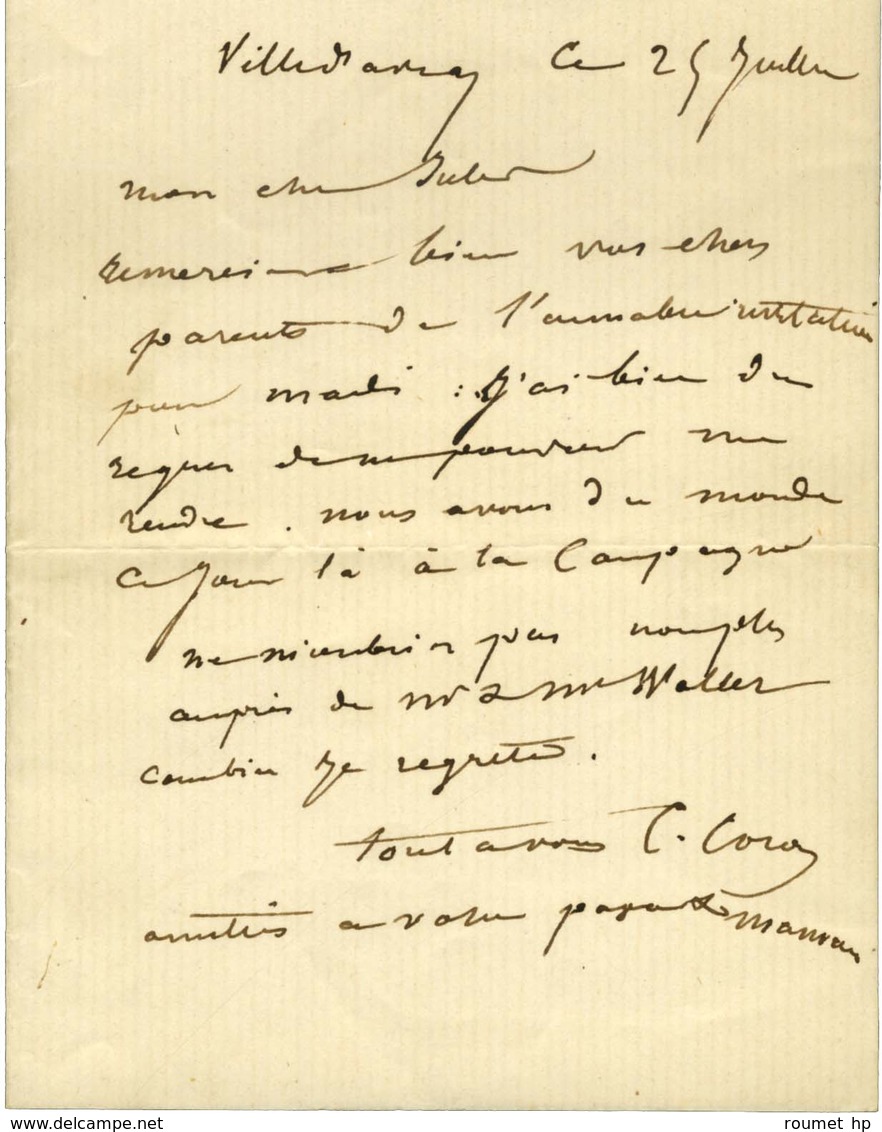 Ville d'avray Ce 25 Juillet
mon cher Jules
remerciez bien vos chers
parents de l'aimable invitation
pour mardi : J'ai bien du
regret de ne pouvoir me
rendre. nous avons du monde
ce jour là à la Campagne
ne m'oubliez pas non plus
auprès de Mr & Mme Waller
combien je regrette.
tout a vous C. Corot
amitiés a votre papa & maman
www.delcampe.net
roumet hp